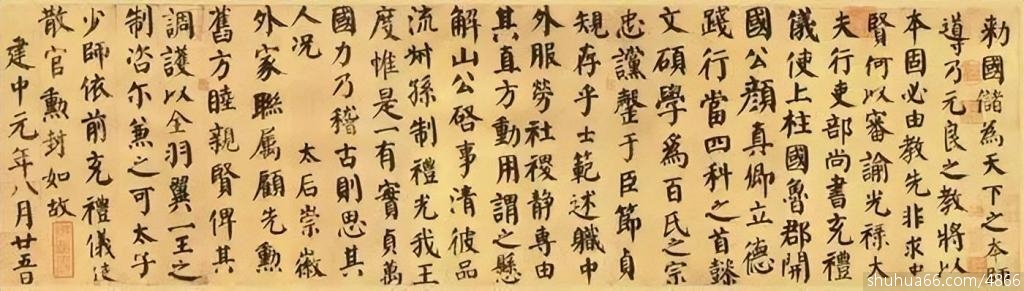 勅國儲為天下之本師
導乃元良之教將以
本固必由教先非求中
賢何以審諭光祿大
夫行吏部尚書充禮
儀使上柱國魯郡開
國公顏真卿立德
踐行當四科之首懿
文碩學為百氏之宗
忠讜罄于臣節貞
規存乎士範述職中
外服勞社稷靜專由
其直方動用謂之懸
解山公啓事清彼品
流叔孫制禮光我王
度惟是一有實貞萬
國力乃稽古則思其
人況 太后崇徽
外家聯屬顧先勲
舊方睦親賢俾其
調護以全羽翼一王之
制咨尔兼之可太子
少師依前充禮儀使
散官勲封如故
建中元年八月廿五日
shuhua66.com/4866